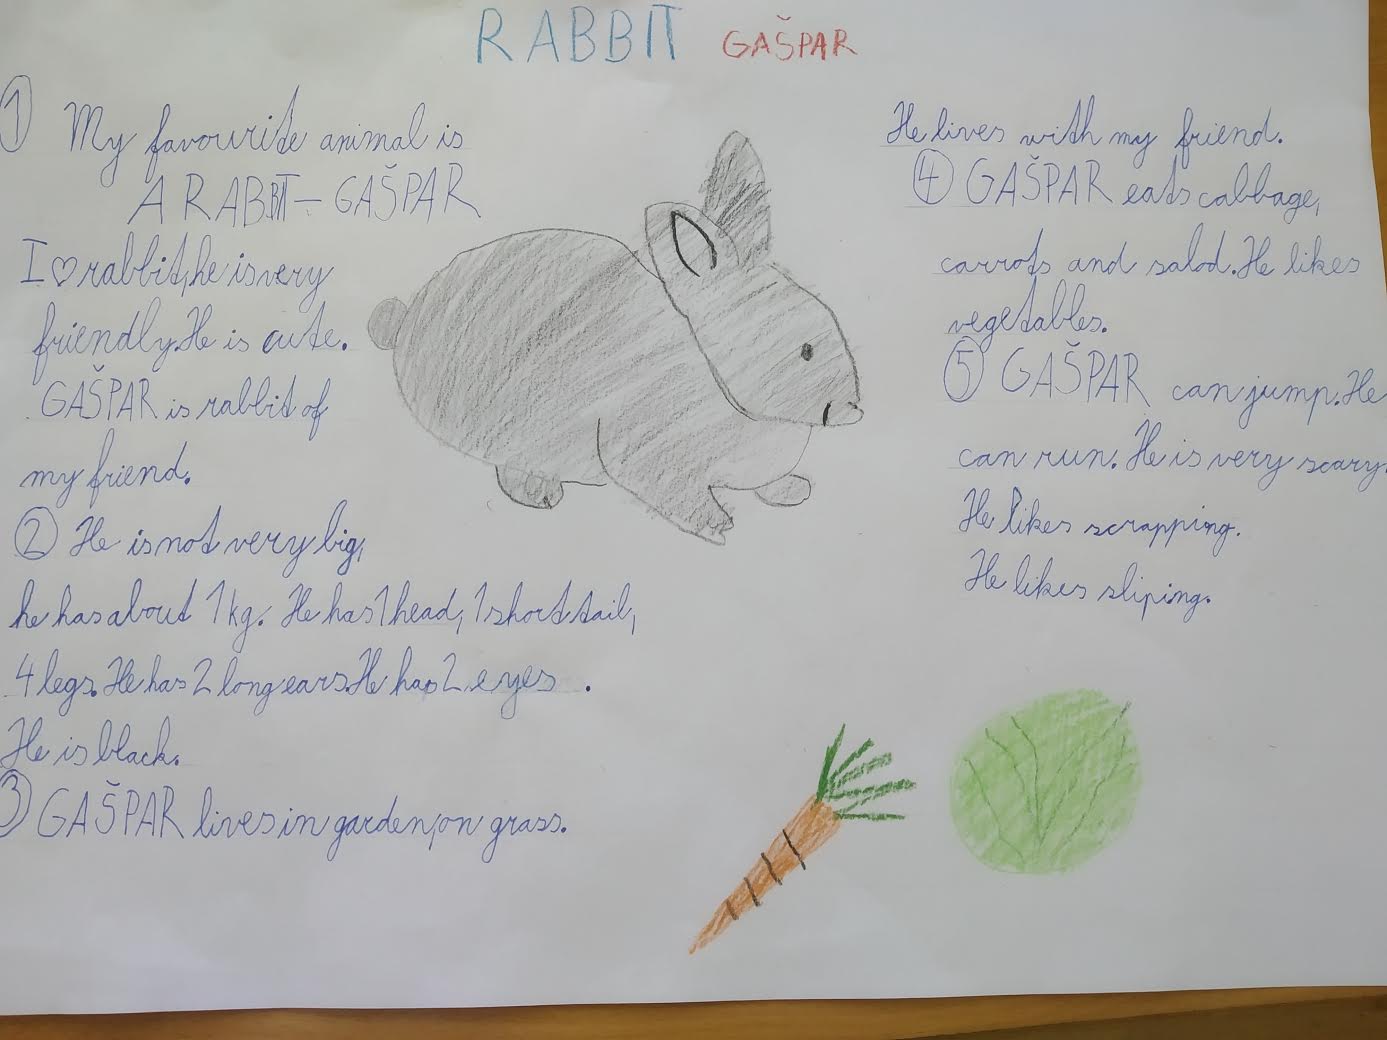 RABBIT GAŠPAR
① My favourite animal is
A RABBIT – GAŠPAR
I ♡ rabbit, he is very
friendly. He is cute.
GAŠPAR is rabbit of
my friend.
② He is not very big,
he has about 1 kg. He has 1 head, 1 short tail,
4 legs. He has 2 long ears. He has 2 eyes .
He is black.
③ GAŠPAR lives in garden, on grass.
He lives with my friend.
④ GAŠPAR eats cabbage,
carrots and salad. He likes
vegetables.
⑤ GAŠPAR can jump. He
can run. He is very scary.
He likes scrapping.
He likes sliping.